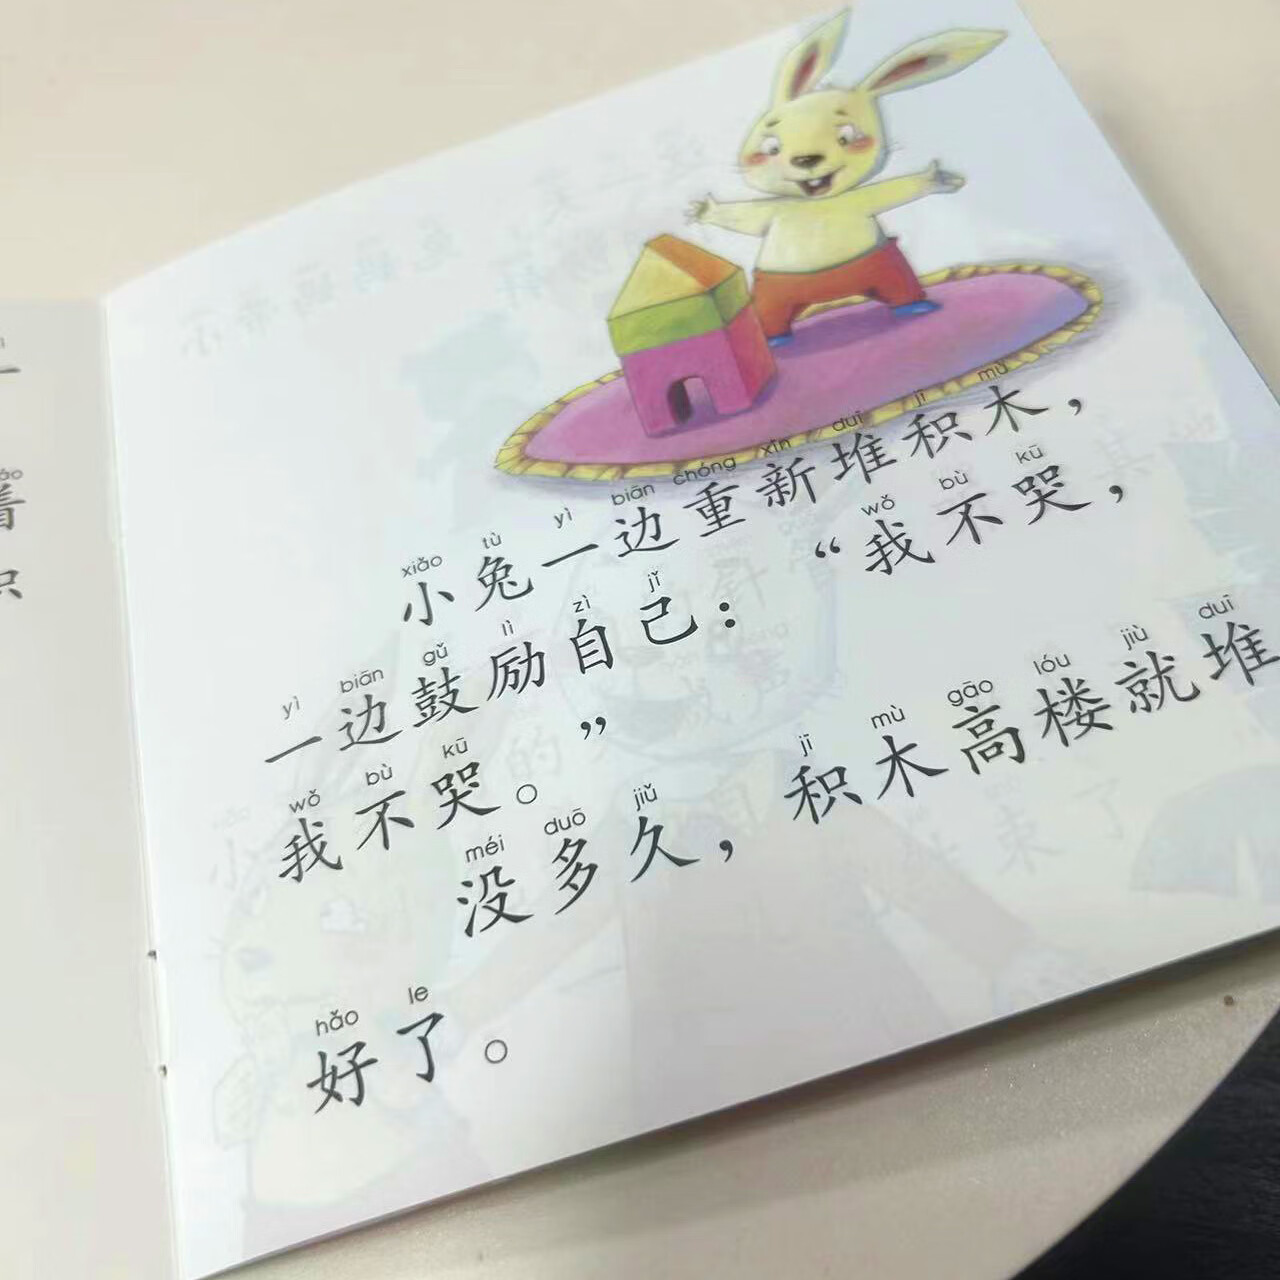 xiǎo tù yì biān chóng xīn duī jī mù
小兔一边重新堆积木，
yì biān gǔ lì zì jǐ wǒ bù kū
一边鼓励自己：“我不哭，
wǒ bù kū
我不哭。”
méi duō jiǔ jī mù gāo lóu jiù duī
没多久，积木高楼就堆
hǎo le
好了。